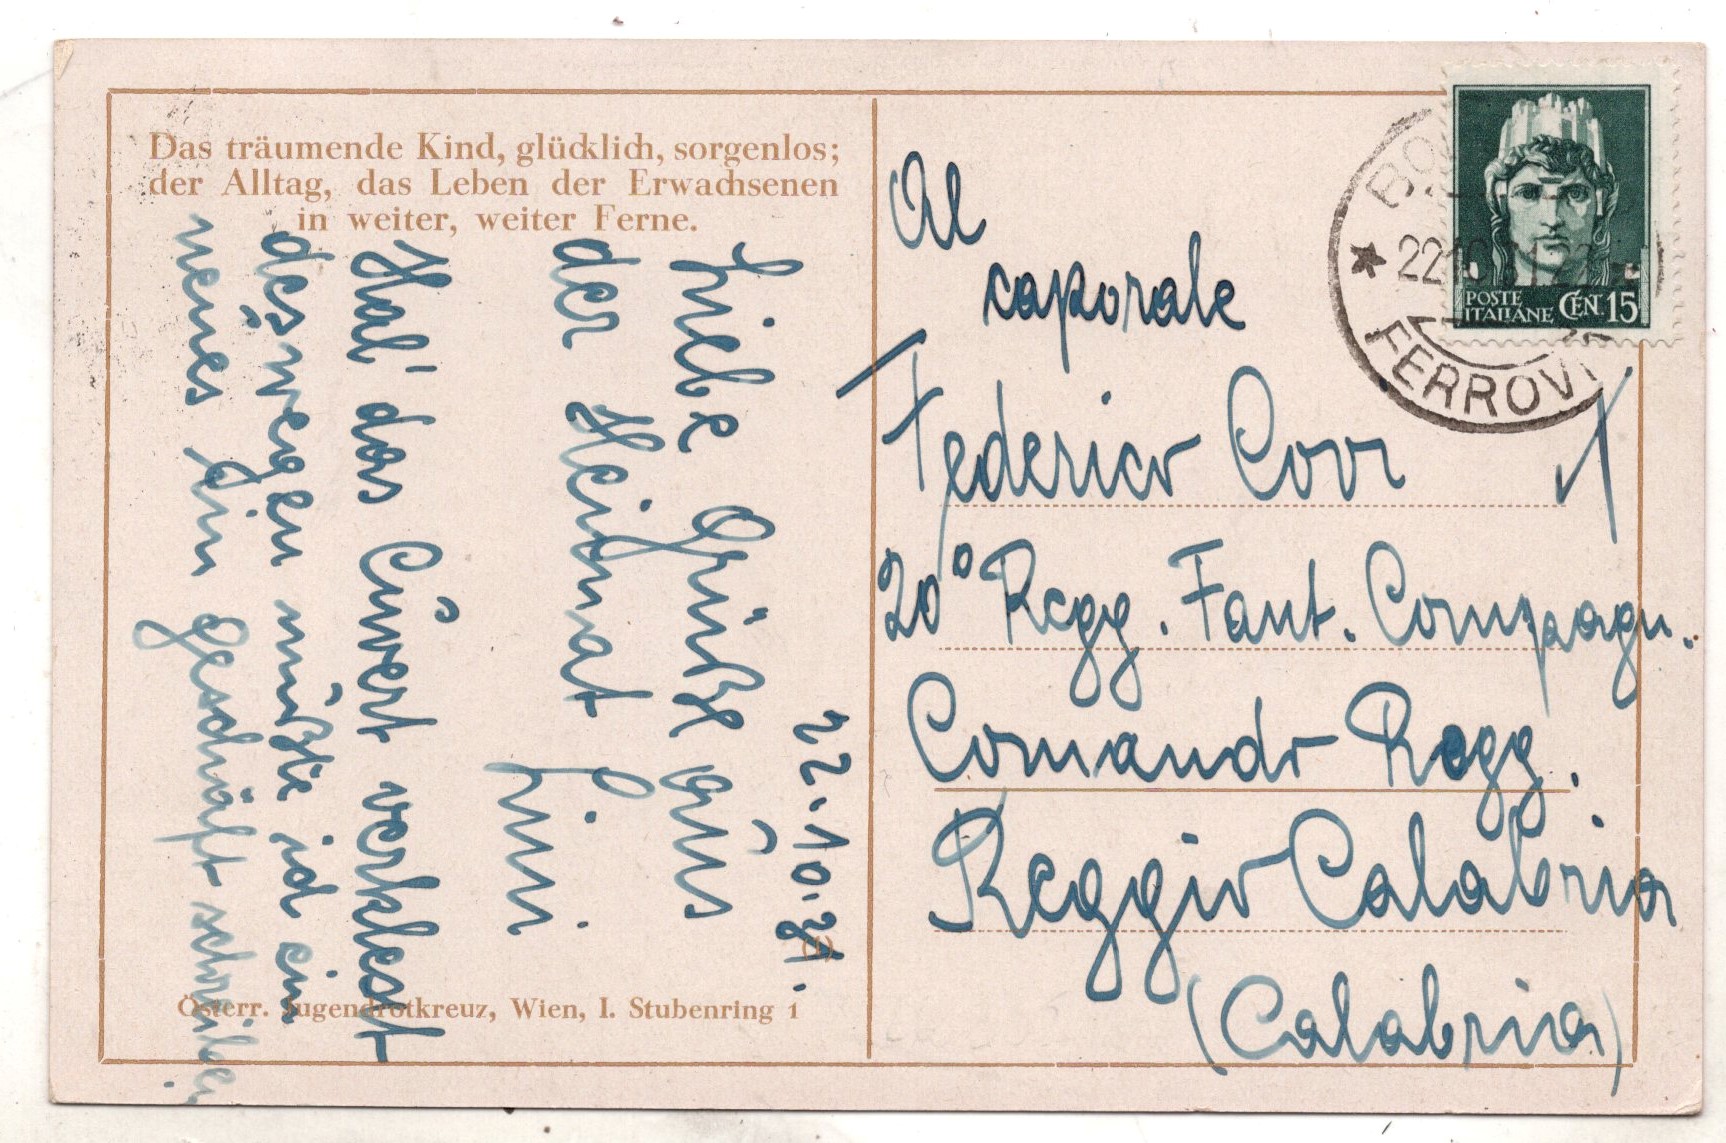 Das träumende Kind, glücklich, sorgenlos;
der Alltag, das Leben der Erwachsenen
in weiter, weiter Ferne.
22.10.31.
Liebe Grüße aus
der Heimat
Lini
Hab' das Cuvert verklext
deswegen mußte ich ein
neues im Geschäft schreiben.
Österr. Jugendrotkreuz, Wien, I. Stubenring 1
Al
caporale
Federico
20° Regg. Fant. Compagn.
Comando Regg.
Reggio Calabria
(Calabria)
POSTE
ITALIANE CEN. 15
FERROVI